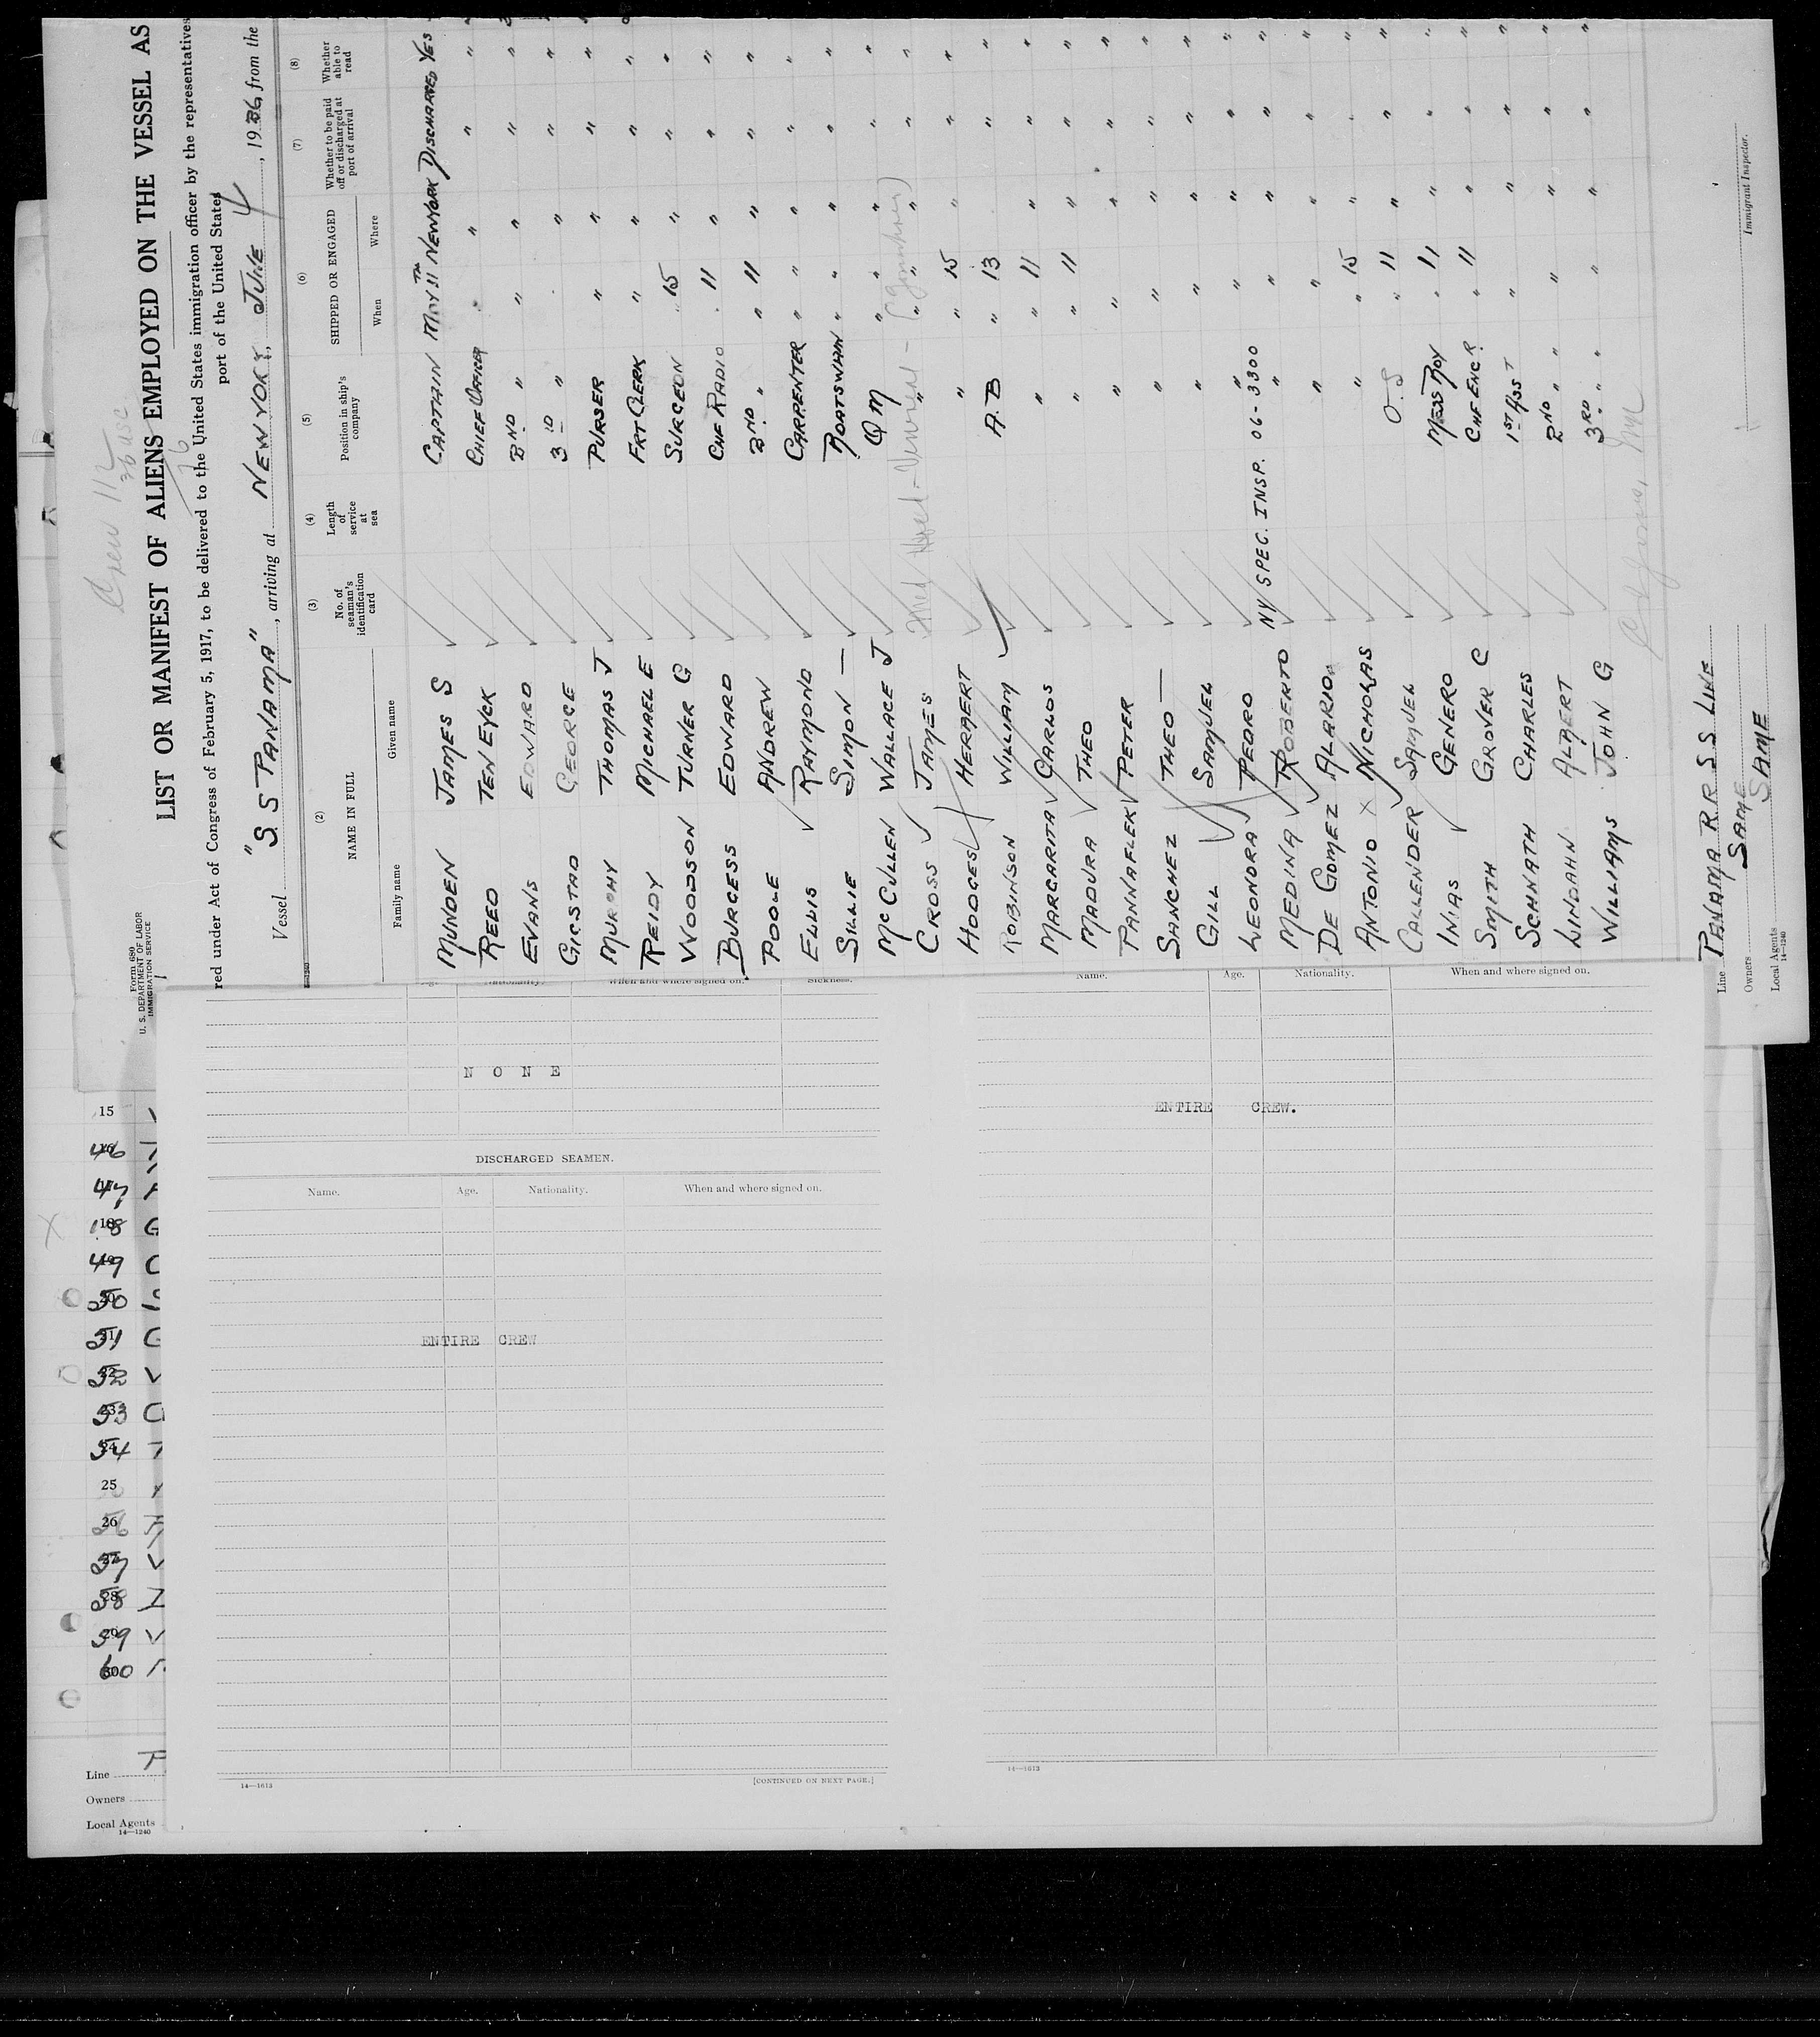 Form 689
U. S. DEPARTMENT OF LABOR
IMMIGRATION SERVICE
Crew 112
36 USC
LIST OR MANIFEST OF ALIENS EMPLOYED ON THE VESSEL AS
red under Act of Congress of February 5, 1917, to be delivered to the United States immigration officer by the representatives
port of the United States
Vessel "S. S PANAMA", arriving at NEW YORK, JUNE 4, 1936, from the
(2) (3) (4) (5) (6) (7) (8)
NAME IN FULL
No. of seaman's identification card
Length of service at sea
Position in ship's company
SHIPPED OR ENGAGED
Whether to be paid off or discharged at port of arrival
Whether able to read
Family name Given name When Where
MUNDEN JAMES S CAPTAIN MAY 11TH NEW YORK DISCHARGED YES
REED TEN EYCK CHIEF OFFICER " " " "
EVANS EDWARD 2ND " " " " "
GIRSTAD GEORGE 3RD " " " "
MURPHY THOMAS J PURSER " " " "
REIDY MICHAEL E FRT CLERK " " " "
WOODSON TURNER G SURGEON " 15 " " "
BURGESS EDWARD CHF RADIO " 11 " " "
POOLE ANDREW 2ND " " 11 " " "
ELLIS RAYMOND CARPENTER " " " " "
SILLIE SIMON — BOATSWAIN " " " " "
McCULLEN WALLACE J QM " " " " "
CROSS JAMES " " " " " "
HODGES HERBERT " " 15 " " "
ROBINSON WILLIAM A.B " 13 " "
MARGARITA CARLOS " " 11 " " "
MADURA THEO " " 11 " " "
PANNAFLEK PETER " " " " "
SANCHEZ THEO — " " " " "
GILL SAMUEL " " " " "
LEONORA PEDRO " " " " "
NY SPEC. INSP. 06-3300
MEDINA ROBERTO " " " " "
DE GOMEZ ALARIO " " " " "
ANTONIO NICHOLAS " " 15 " " "
CALLENDER SAMUEL O.S " 11 " " "
INIAS GENERO MESS BOY " 11 " " "
SMITH GROVER C CHF ENGR. " 11 " " "
SCHNATH CHARLES 1ST ASST " " " "
LINDAHN ALBERT 2ND " " " " " "
WILLIAMS JOHN G 3RD " " " " " "
Line PANAMA R R S S LINE
Owners SAME
Local Agents SAME
14—1240
Immigrant Inspector.
Nationality. When and where signed on. Sickness.
NONE
DISCHARGED SEAMEN.
Name. Age. Nationality. When and where signed on.
ENTIRE CREW
14—1613
[CONTINUED ON NEXT PAGE.]
Name. Age. Nationality. When and where signed on.
ENTIRE CREW.
14—1613
15
46
47
18
49
50
51
52
53
54
25
26
57
58
59
60
Line
Owners
Local Agents
14—1240